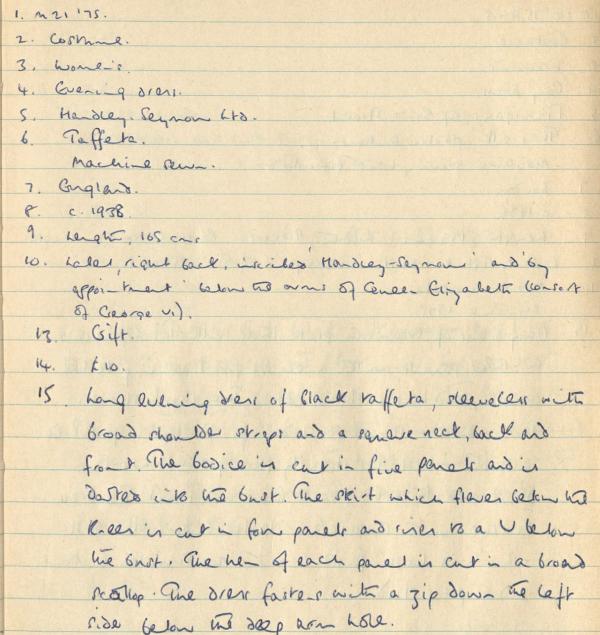 1. M21 '75.
2. Costume.
3. Women's.
4. Evening dress.
5. Handley-Seymour Ltd.
6. Taffeta.
Machine sewn.
7. England.
8. c. 1938.
9. Length, 165 cms
10. Label, right back, inscribed 'Handley-Seymour' and 'by
appointment' below the arms of Queen Elizabeth (consort
of George VI).
13. Gift.
14. £10.
15 Long evening dress of black taffeta, sleeveless with
broad shoulder straps and a square neck, back and
front. The bodice is cut in five panels and is
darted into the bust. The skirt which flares below the
knees is cut in four panels and rises to a V below
the bust. The hem of each panel is cut in a broad
scallop. The dress fastens with a zip down the left
side below the deep arm hole.